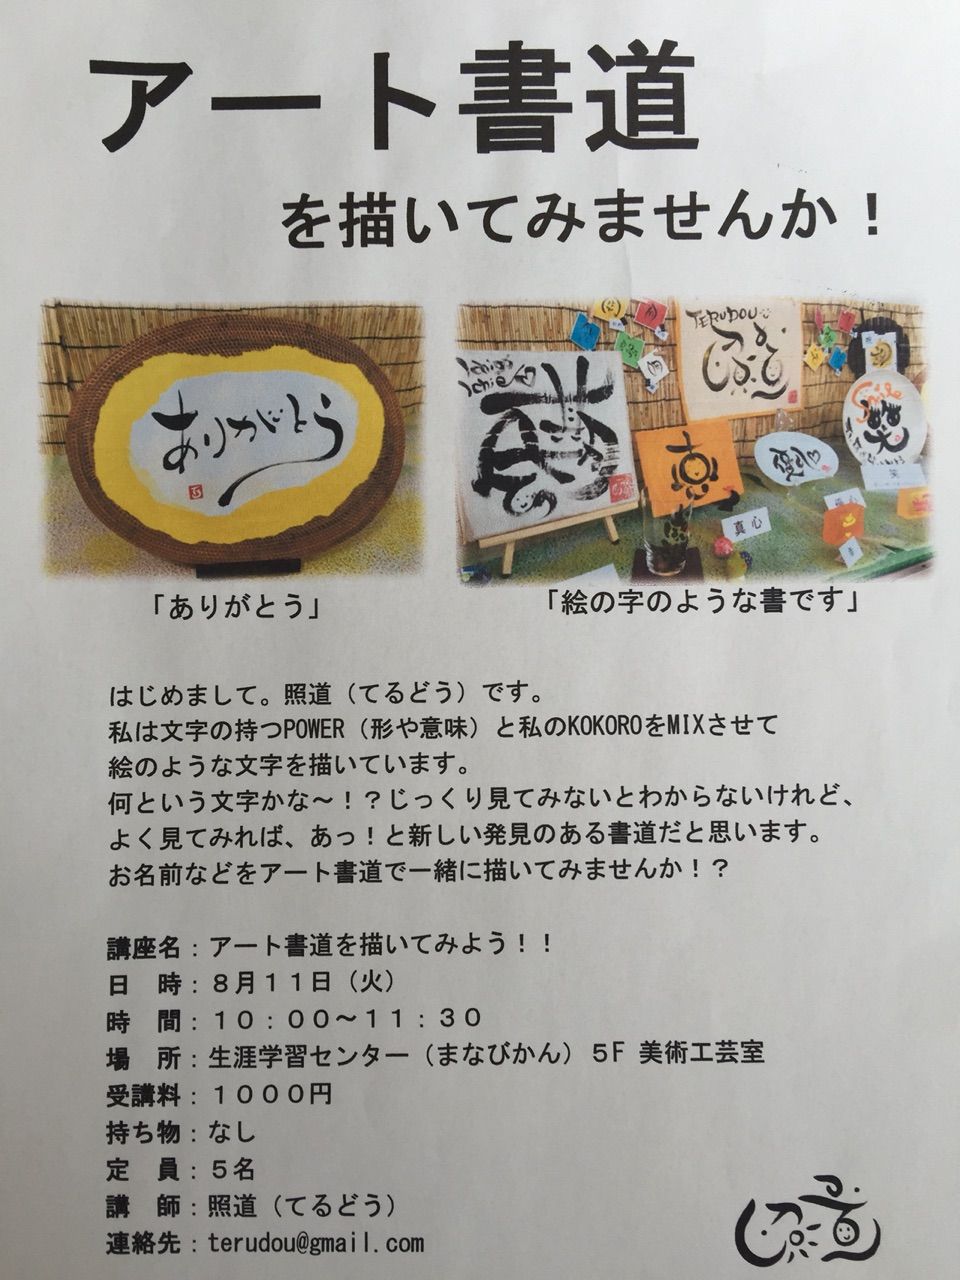 アート書道
を描いてみませんか！
ありがとう
Ichigo
Ichie
TERUDOU
Smile
笑
真心
「ありがとう」
「絵の字のような書です」
はじめまして。照道（てるどう）です。
私は文字の持つPOWER（形や意味）と私のKOKOROをMIXさせて
絵のような文字を描いています。
何という文字かな～！？じっくり見てみないとわからないけれど、
よく見てみれば、あっ！と新しい発見のある書道だと思います。
お名前などをアート書道で一緒に描いてみませんか！？
講座名：アート書道を描いてみよう！！
日　時：８月１１日（火）
時　間：１０：００～１１：３０
場　所：生涯学習センター（まなびかん）５F 美術工芸室
受講料：１０００円
持ち物：なし
定　員：５名
講　師：照道（てるどう）
連絡先：terudou@gmail.com
照道